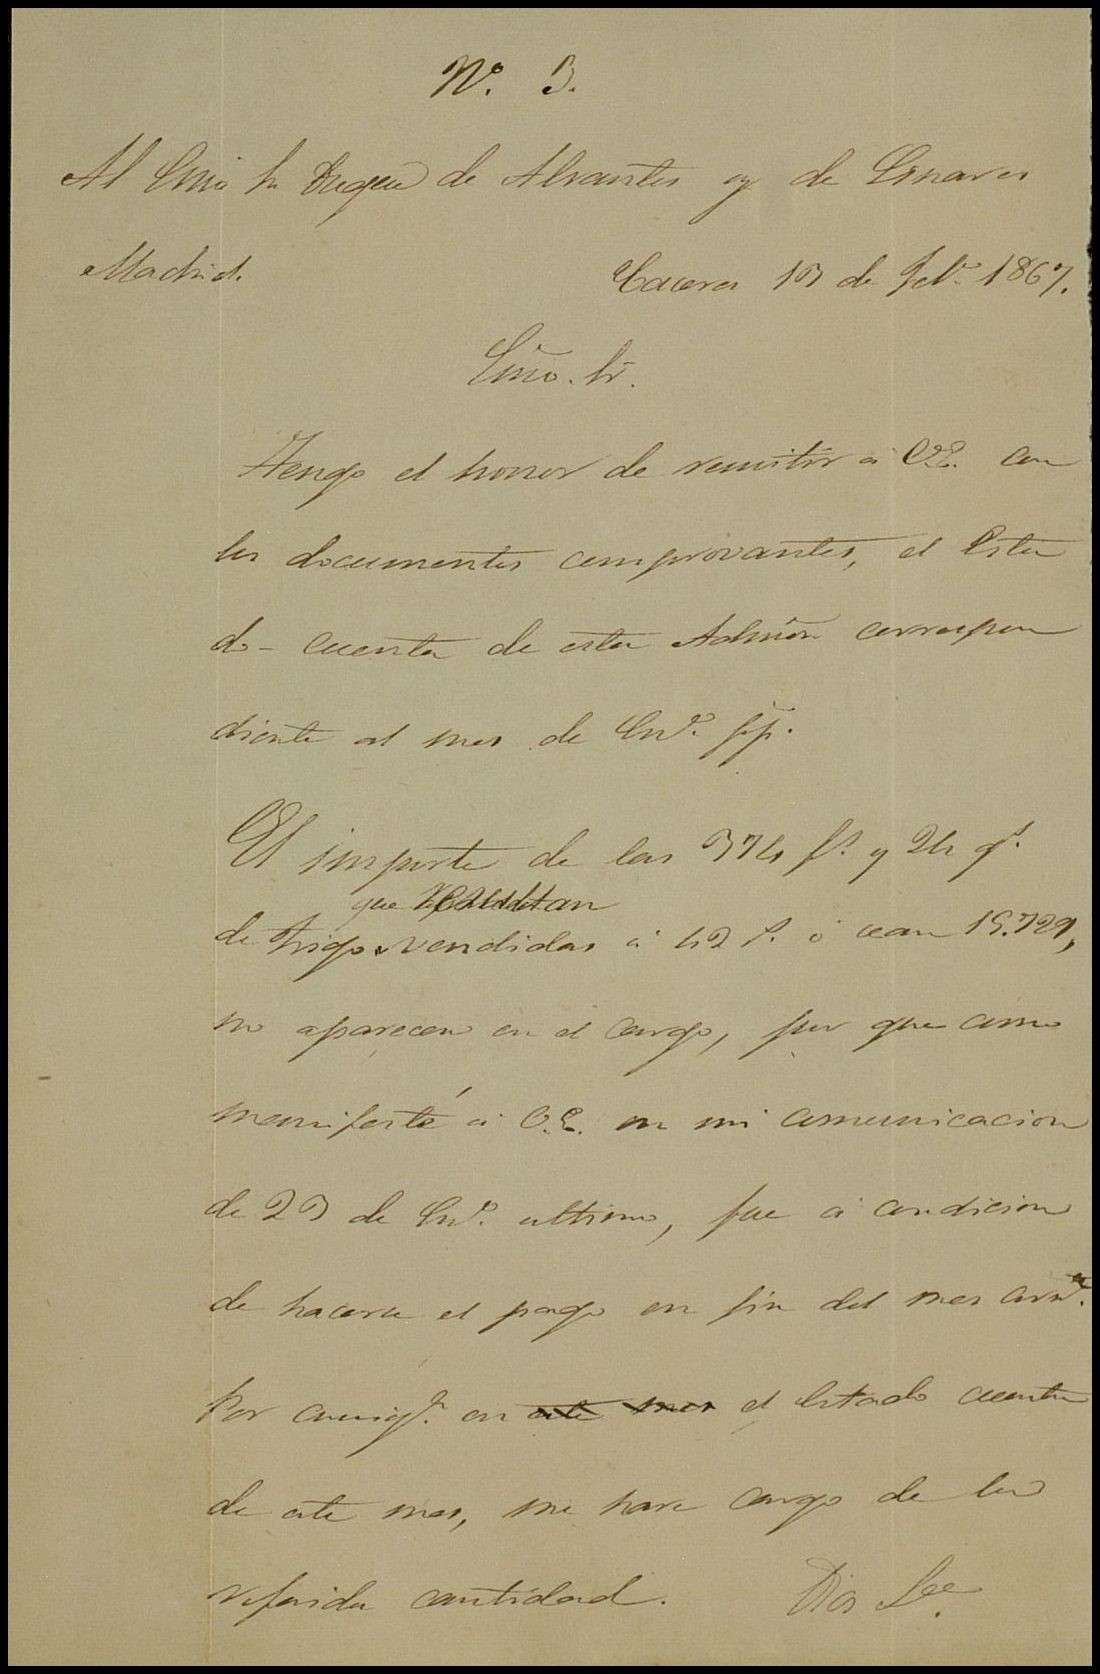 Nº. 3.
Al Exmo Sr Duque de Abrantes y de Linares
Madrid.
Caceres 13 de Feb.º 1867.
Exmo. Sr.
Tengo el honor de remitir á V.E. con
los documentos comprovantes, el Esta
do-cuenta de esta Admon correspon
diente al mes de En.º ppº.
El importe de las 374 f.s y 2½ q.s
que resultan
de trigo vendidas á 42 r.s ó sean 15.729,
no aparecen en el cargo, por que como
manifesté á V.E. en mi comunicacion
de 23 de En.º ultimo, fue á condicion
de hacerse el pago en fin del mes corr.te
Por consig.te en este mes el Estado cuenta
de este mes, me hare cargo de la
referida cantidad. Dios &ª.